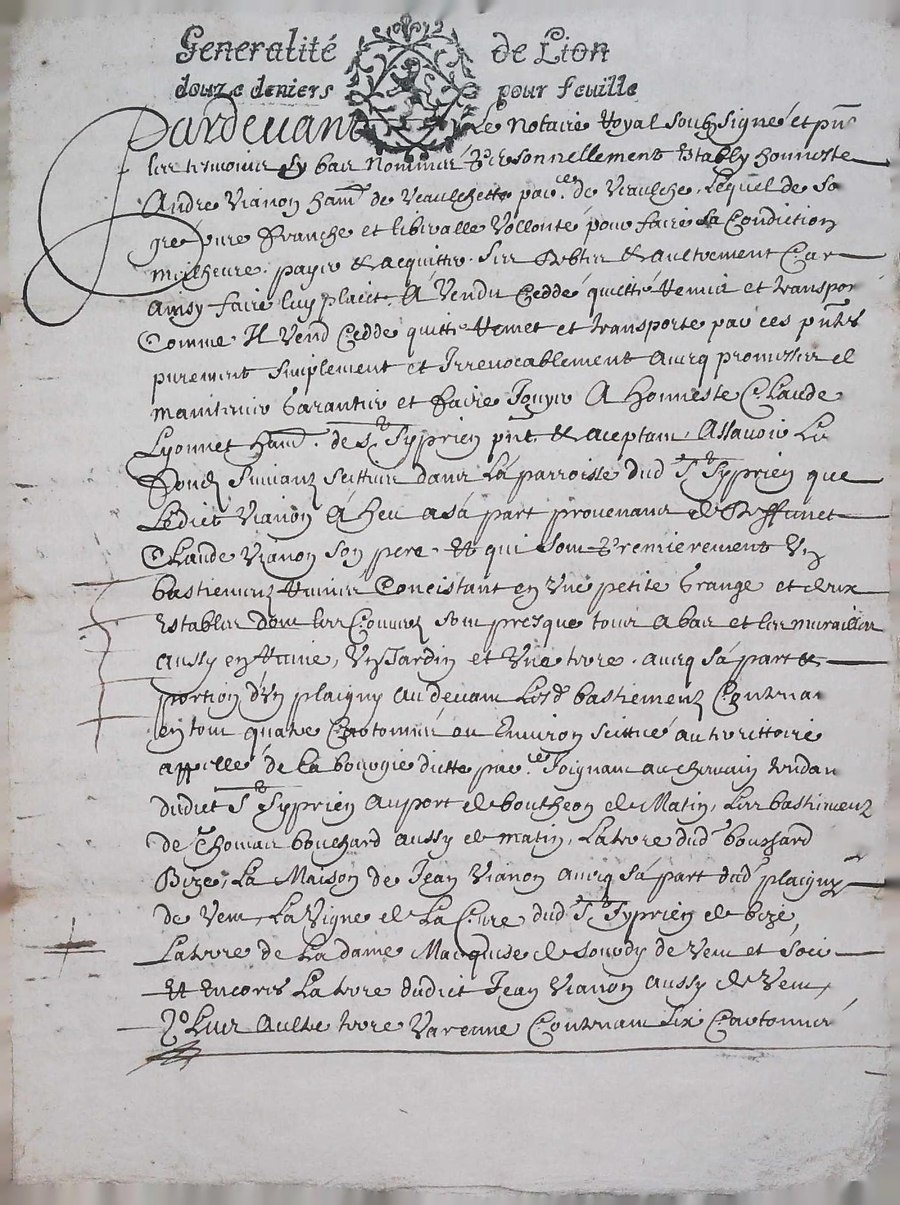 Generalité de Lion
douze deniers pour feuille
Pardevant Le Notaire Royal soubsigné et pñs
les tesmoins sy bas nommés Personnellement Estably honneste
André Vianon habᵗ de Veauchette parᶜᵉ de Veaulche, Lequel de so
gré pure franche et liberalle vollonté pour faire sa Condiction
meilheure, payer & acquitter ses debtes & aultrement Car
ainsy faire luy plaict. A Vendu Ceddé quitté Remis et transpor
Comme Il Vend Cedde quitte Remet et transporte par ces pñtes
purement simplement et Irrevocablement avecq promesse de
maintenir Garantir et faire Jouyr A Honneste Claude
Lyonnet habᵗ. de Sᵗ Syprien pñt & aceptant, Assavoir Les
Fonds suivans scittués dans La parroisse dud Sᵗ Syprien que
Ledict Vianon à heu a sa part provenans de Deffunct
Claude Vianon son pere. Et qui sont Premierement Un
bastiment Ruiné Concistant en Une petite Grange et deux
Estables dont les Couverts sont presque tous A bas et les murailles
aussy en Ruine, Un Jardin et Une terre, avecq sa part &
portion d'un placigny au devant Lesd bastiments Contenan
en tout quatre Cartonnées ou Environ scittué au territtoire
appellé de la bouogie dicte parᶜᵉ Joignant au chemin tendan
dudict Sᵗ Syprien au port de boutheon de Matin, Les bastiments
de Thomas bouchard aussy de matin, La terre dud bouchard
Bize, La Maison de Jean Vianon avecq sa part dud placigny
de Vent, La Vigne de La Cure dud Sᵗ Syprien de bize
La terre de La dame Marquise de Sourdy de Vent et soir
Et Encores La terre dudict Jean Vianon aussy de Vent,
2º Une Aultre terre Varenne Contenant six Cartonnées